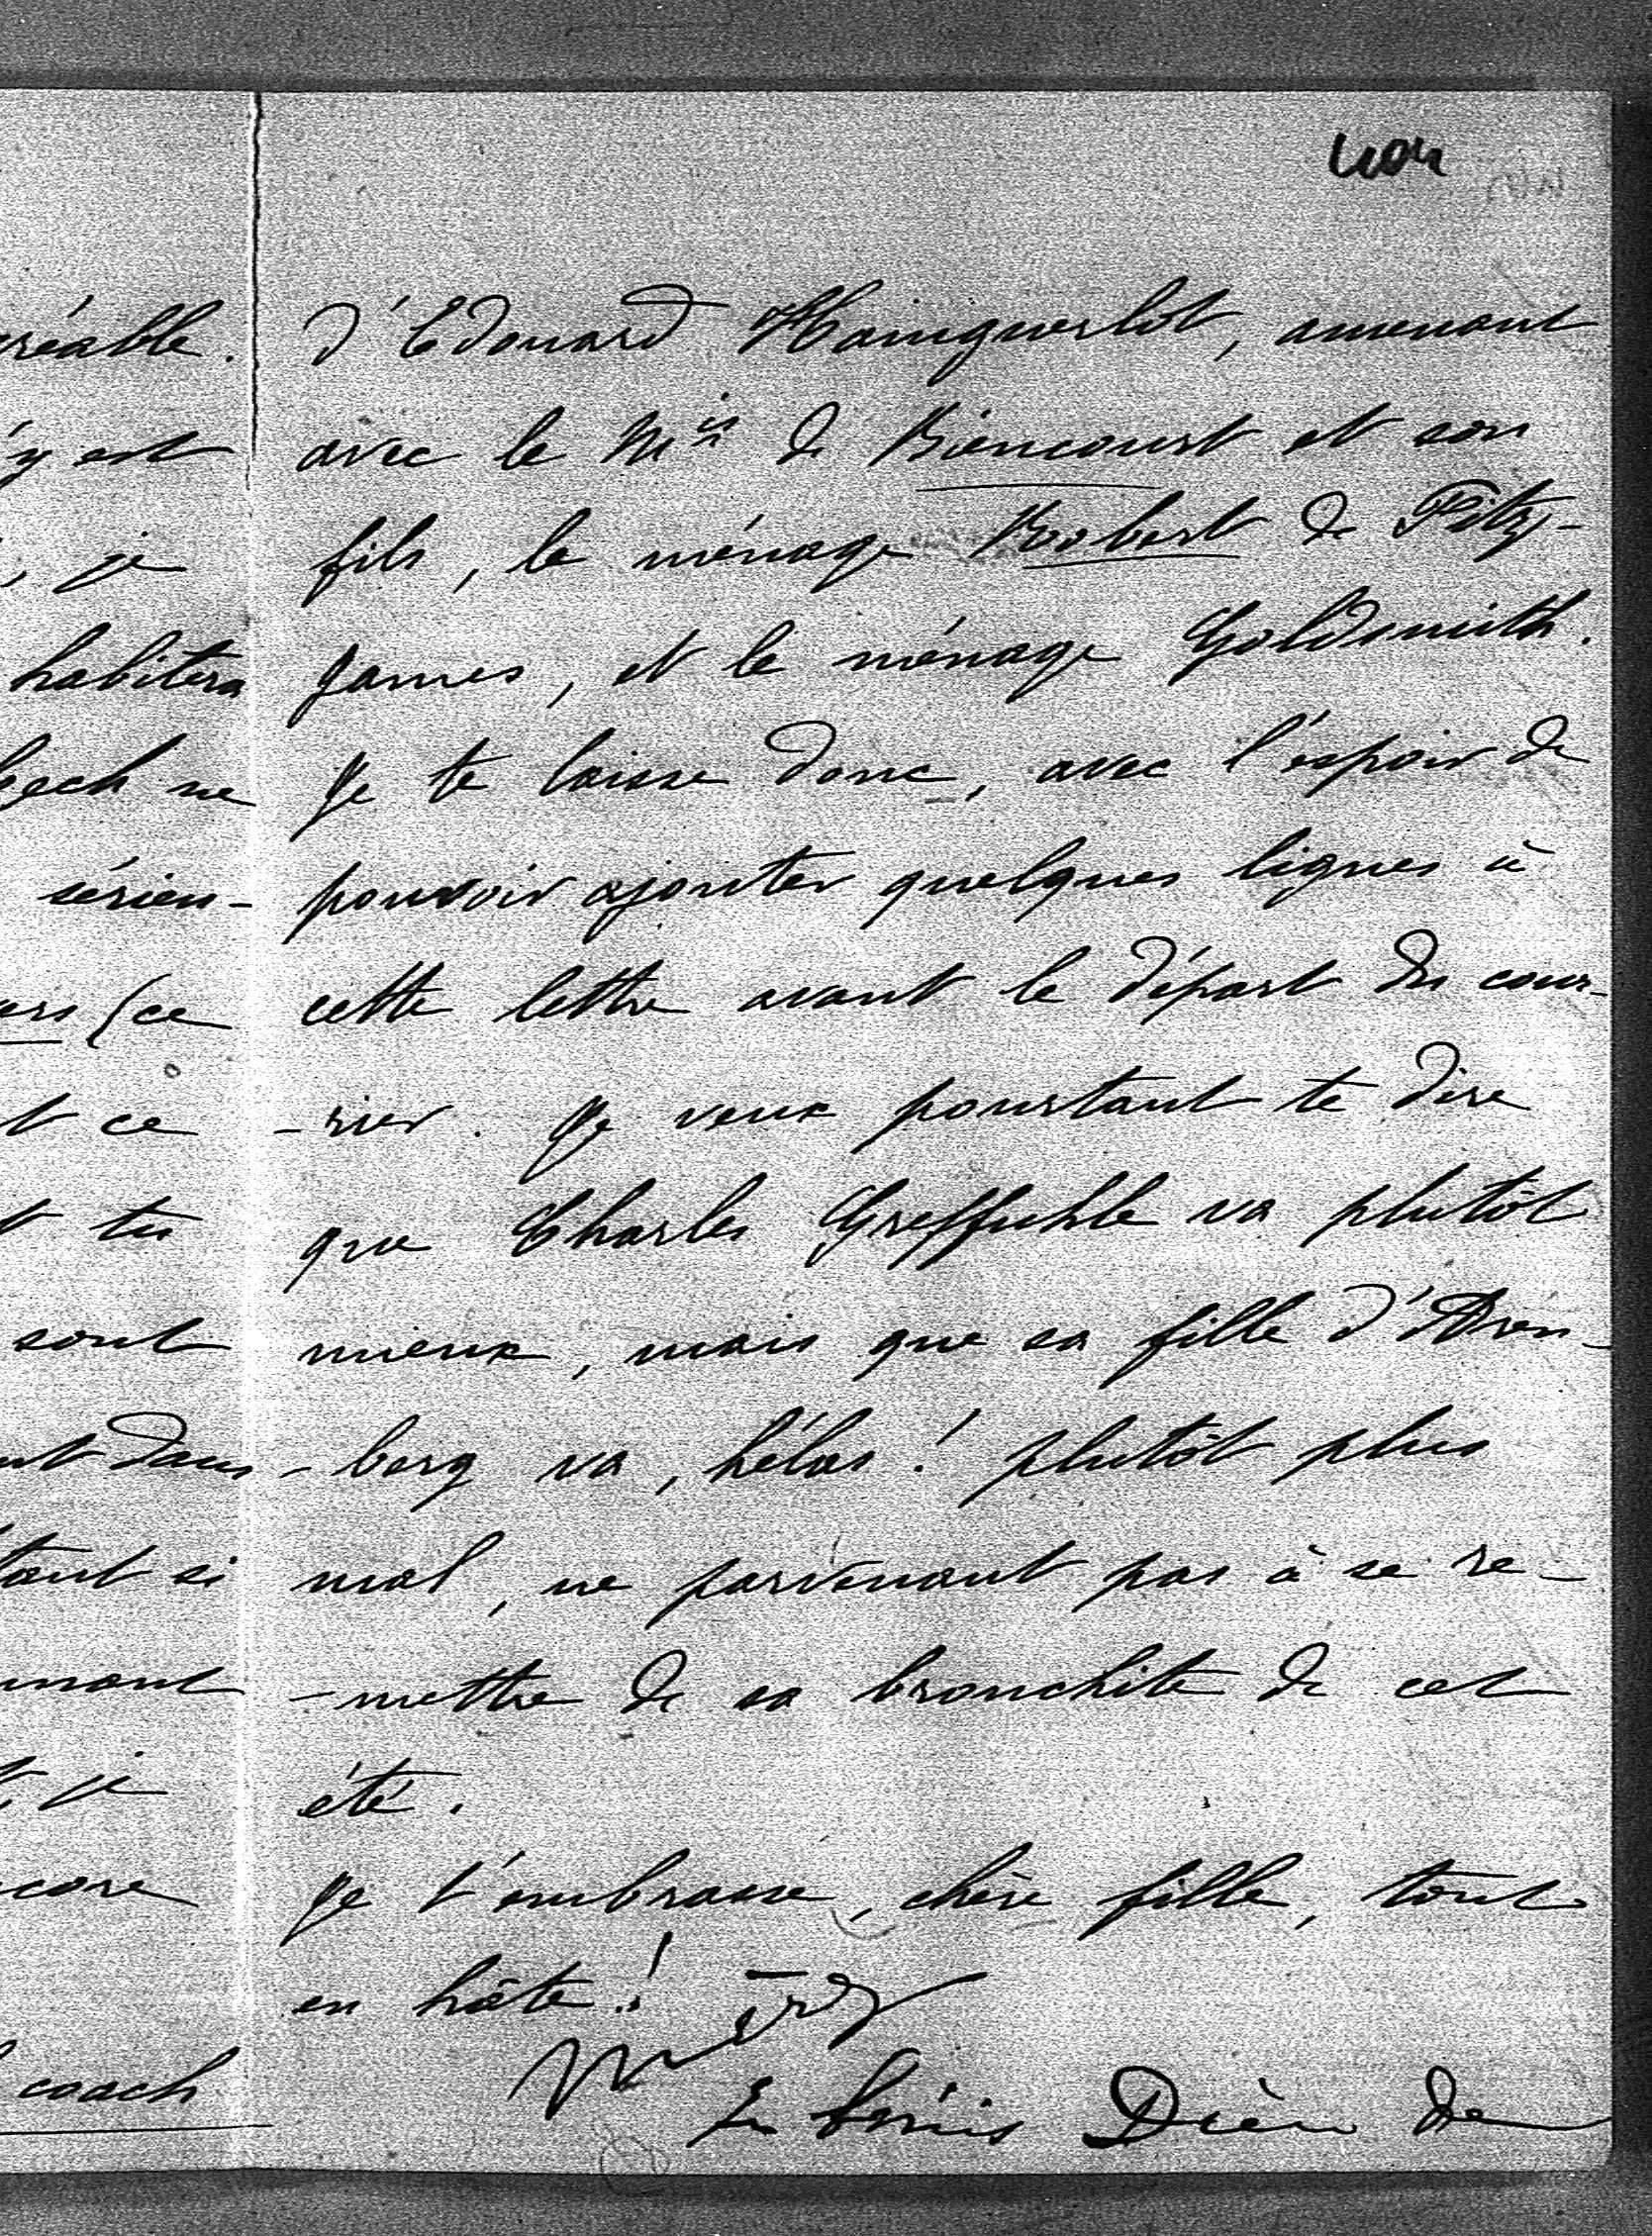 d'Edouard Hainguerlot, amenant
avec le Mis de Biencourt et son
fils, le ménage Robert de Fitz-
James, et le ménage Goldsmith.
Je te laisse donc, avec l'espoir de
pouvoir ajouter quelques lignes à
cette lettre avant le départ du cour-
-rier. Je veux pourtant te dire
que Charles Greffuhle va plutôt
mieux, mais que sa fille d'Aren-
-berg va, hélas! plutôt plus
mal, ne parvenant pas à se re-
-mettre de sa bronchite de cet
été.
Je t'embrasse, chère fille, tout
en hâte!
Je bénis Dieu de
réable.
y est
, je
habitera
ne
sérieu-
ers (ce
t ce
t tu
sont
nt dans
tant si
nant
t, je
core
coach